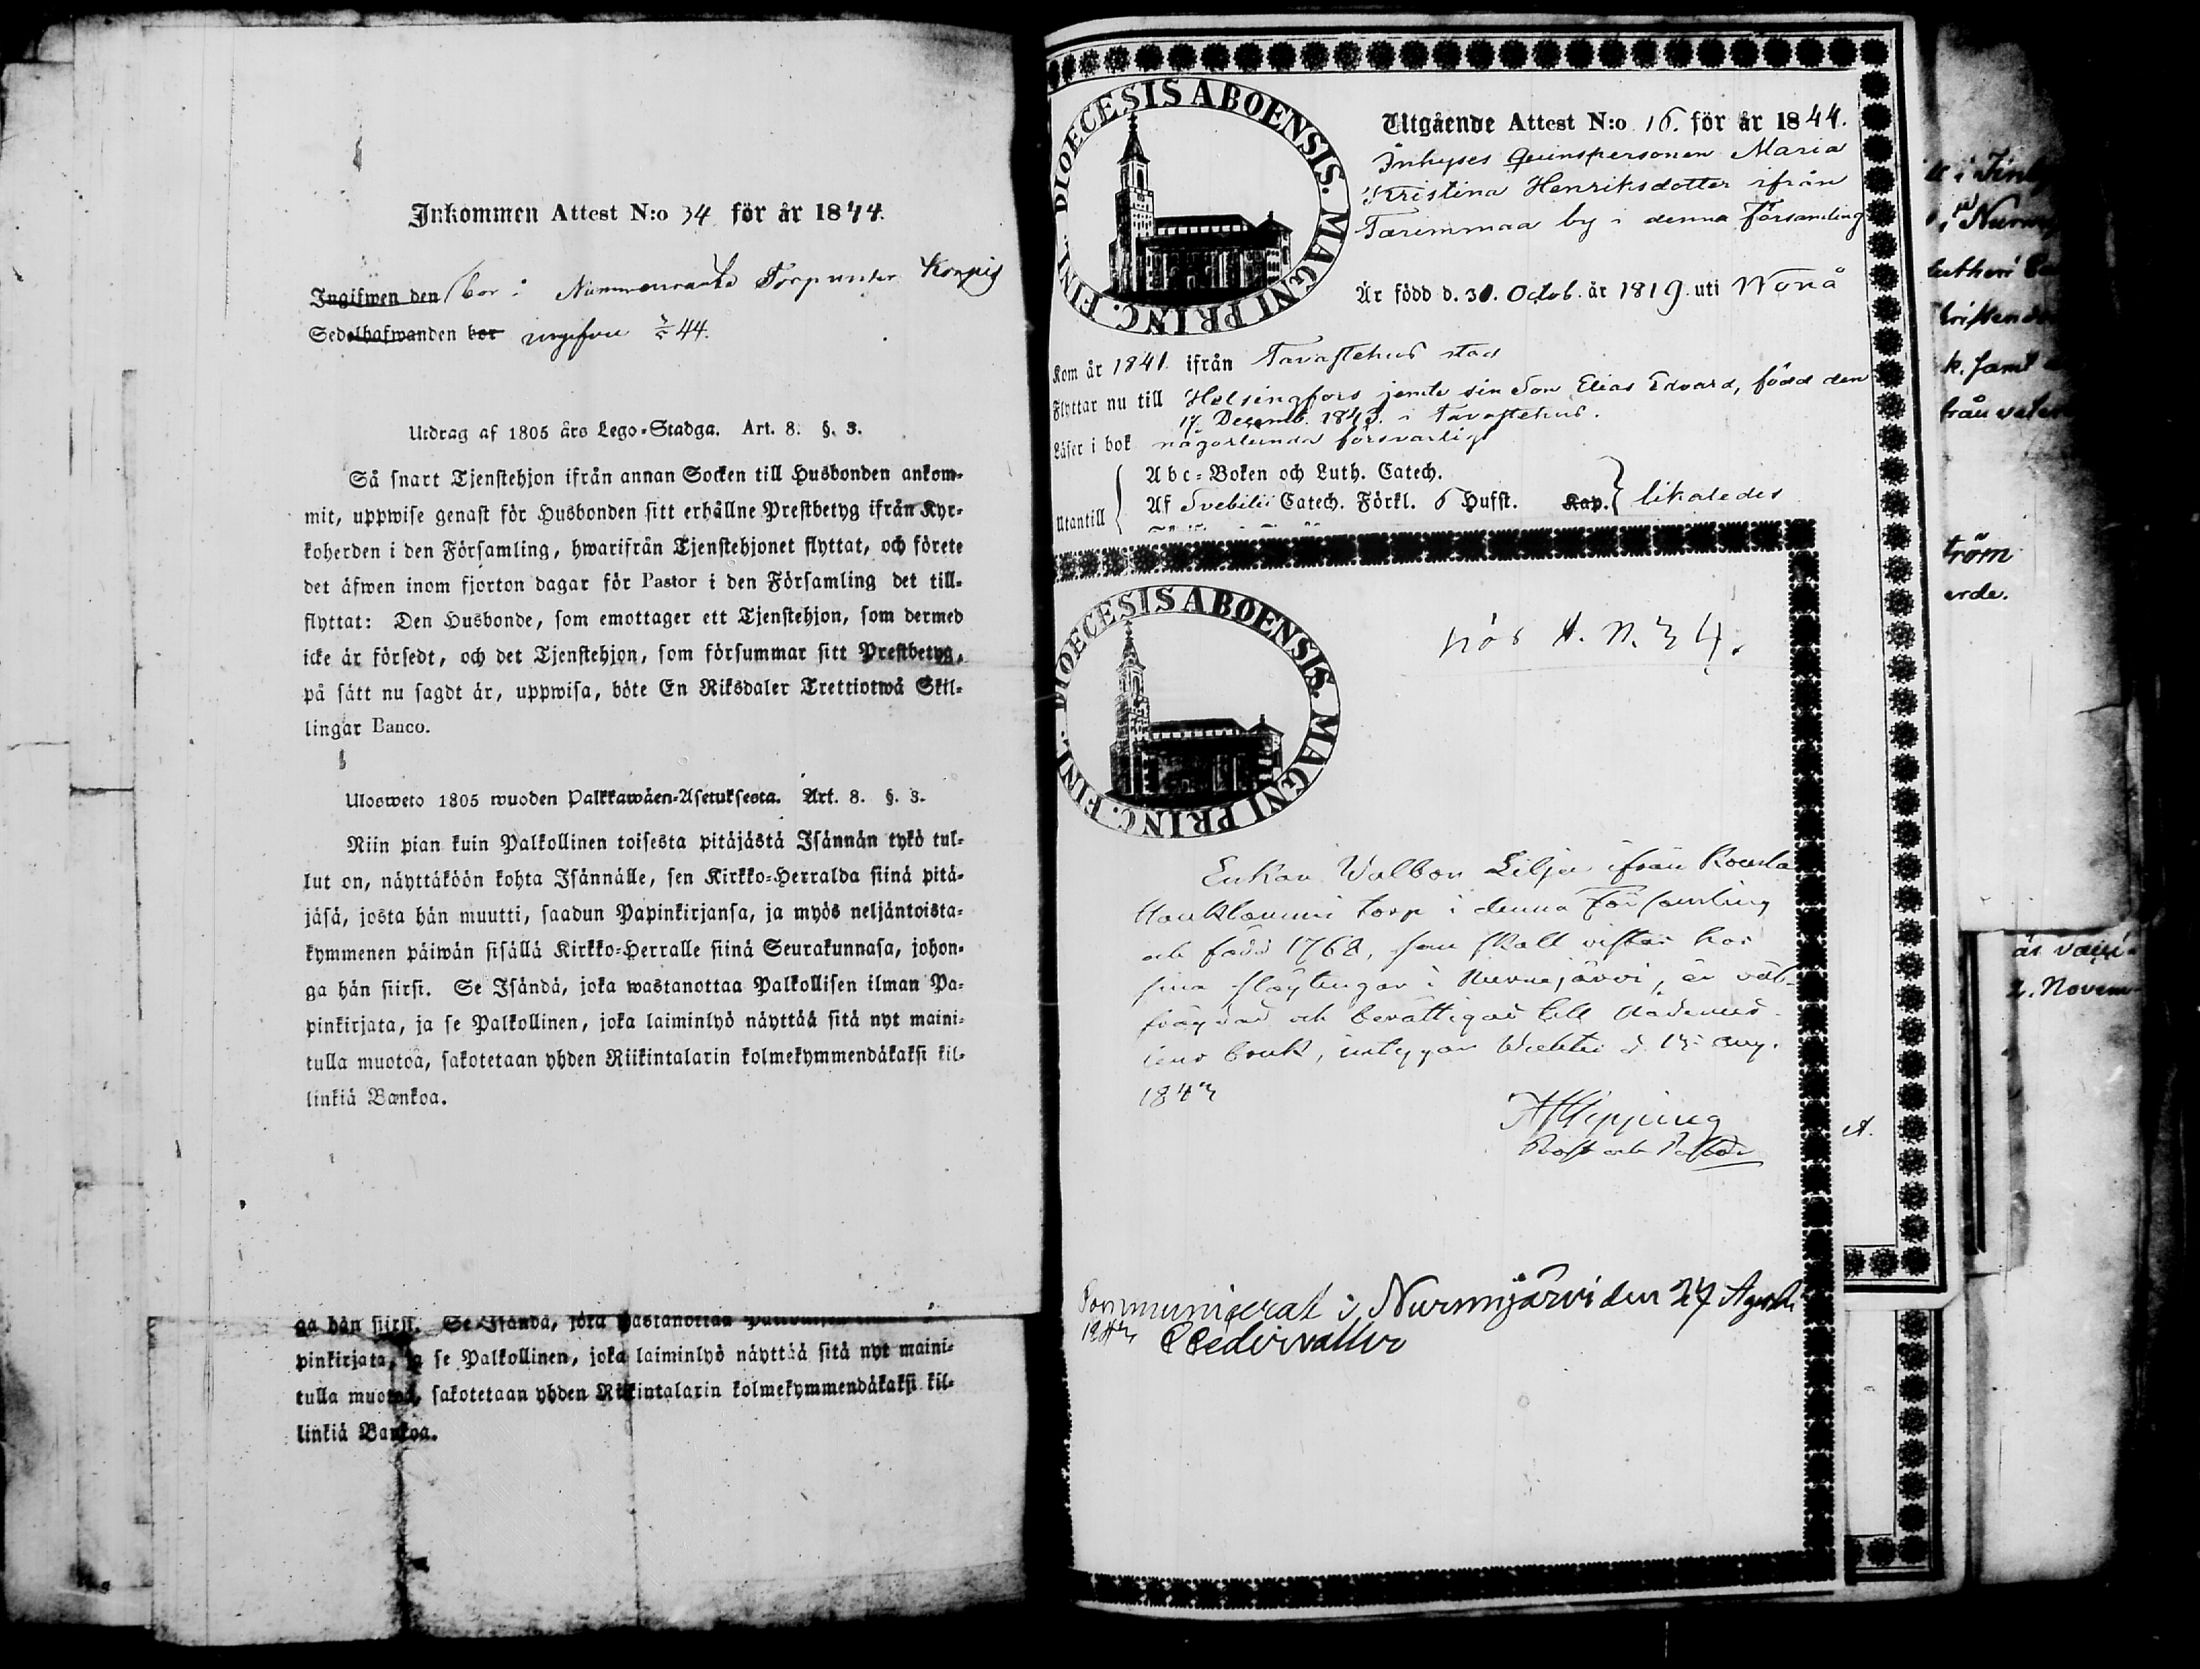 Inkommen Attest N:o 34 för år 1844.
Ingifwen den bor i Torp under
Sedelhafwanden bor ingifven 44.
Utdrag af 1805 års Lego-Stadga. Art. 8. §. 3.
Så snart Tjenstehjon ifrån annan Socken till Husbonden ankom-
mit, uppwise genast för Husbonden sitt erhållne Prestbetyg ifrån Kyr-
koherden i den Församling, hwarifrån Tjenstehjonet flyttat, och förete
det äfwen inom fjorton dagar för Pastor i den Församling det till-
flyttat: Den Husbonde, som emottager ett Tjenstehjon, som dermed
icke är försedt, och det Tjenstehjon, som försummar sitt Prestbetyg,
på sätt nu sagdt är, uppwisa, böte En Riksdaler Trettiotwå Skil-
lingar Banco.
Ulosweto 1805 wuoden Palkkawäen-Asetuksesta. Art. 8. §. 3.
Niin pian kuin Palkollinen toisesta pitäjästä Isännän tykö tul-
lut on, näyttäköön kohta Isännälle, sen Kirkko-Herralda siinä pitä-
jäsä, josta hän muutti, saadun Papinkirjansa, ja myös neljäntoista-
kymmenen päiwän sisällä Kirkko-Herralle siinä Seurakunnasa, johon-
ga hän siirsi. Se Isändä, joka wastanottaa Palkollisen ilman Pa-
pinkirjata, ja se Palkollinen, joka laiminlyö näyttää sitä nyt maini-
tulla muotoa, sakotetaan yhden Riikintalarin kolmekymmendäkaksi kil-
linkiä Bankoa.
ga hän siirsi. Se Isändä, joka wastanottaa
pinkirjata, ja se Palkollinen, joka laiminlyö näyttää sitä nyt maini-
tulla muotoa, sakotetaan yhden Riikintalarin kolmekymmendäkaksi kil-
linkiä Bankoa.
DIOECESIS ABOENSIS. MAGNI PRINC. FINL.
Utgående Attest N:o 16. för år 1844.
Inhyses Qvinspersonen Maria
Kristina Henriksdotter ifrån
Tarimmaa by i denna Församling
Är född d. 30. Octob. år 1819. uti Wånå
Kom år 1841. ifrån Tavastehus stad
Flyttar nu till Helsingfors jemte sin Son Elias Edvard, född den
17 Decemb. 1843. i Tavastehus.
Läser i bok någorlunda försvarligt
Utantill
Abc-Boken och Luth. Catech.
Af Svebilii Catech. Förkl. 6 Hufst. Kap. likaledes
DIOECESIS ABOENSIS. MAGNI PRINC. FINL.
A. N. 34.
Enkan Walbor Lilja ifrån
torp i denna Församling
och född 1768, som skall vistas hos
sina slägtingar i Nurmijärvi, är väl-
fräjdad och berättigad till Nådemed-
lens bruk, intygar Wichtis d. 15 Aug.
1843
Prost och Pastor
Communicerat i Nurmijärvi den 27 Agusti
1843 C Cedervaller
tröm
erde.
2. Novem-